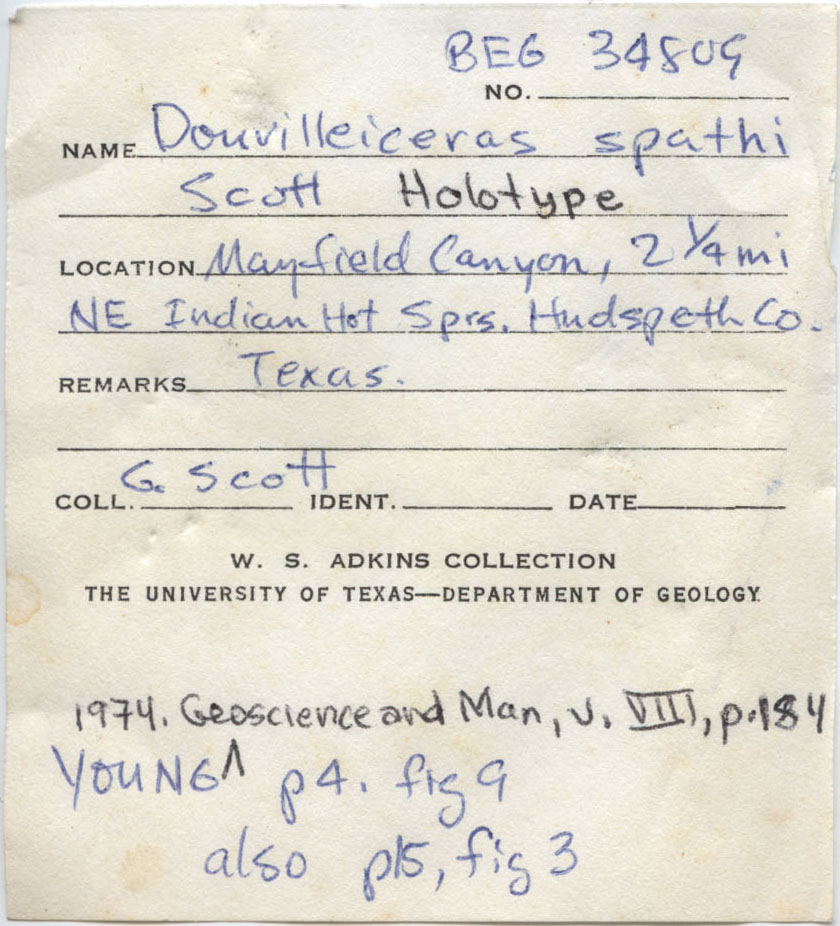 BEG 34809
NO.
NAME Douvilleiceras spathi
Scott Holotype
LOCATION Mayfield Canyon, 2 1/4 mi
NE Indian Hot Sprs. Hudspeth Co.
REMARKS Texas.
COLL. G. Scott IDENT. DATE
W. S. ADKINS COLLECTION
THE UNIVERSITY OF TEXAS—DEPARTMENT OF GEOLOGY
1974. Geoscience and Man, v. VIII, p. 184
YOUNG ^ p4. fig 9
also pl5, fig 3